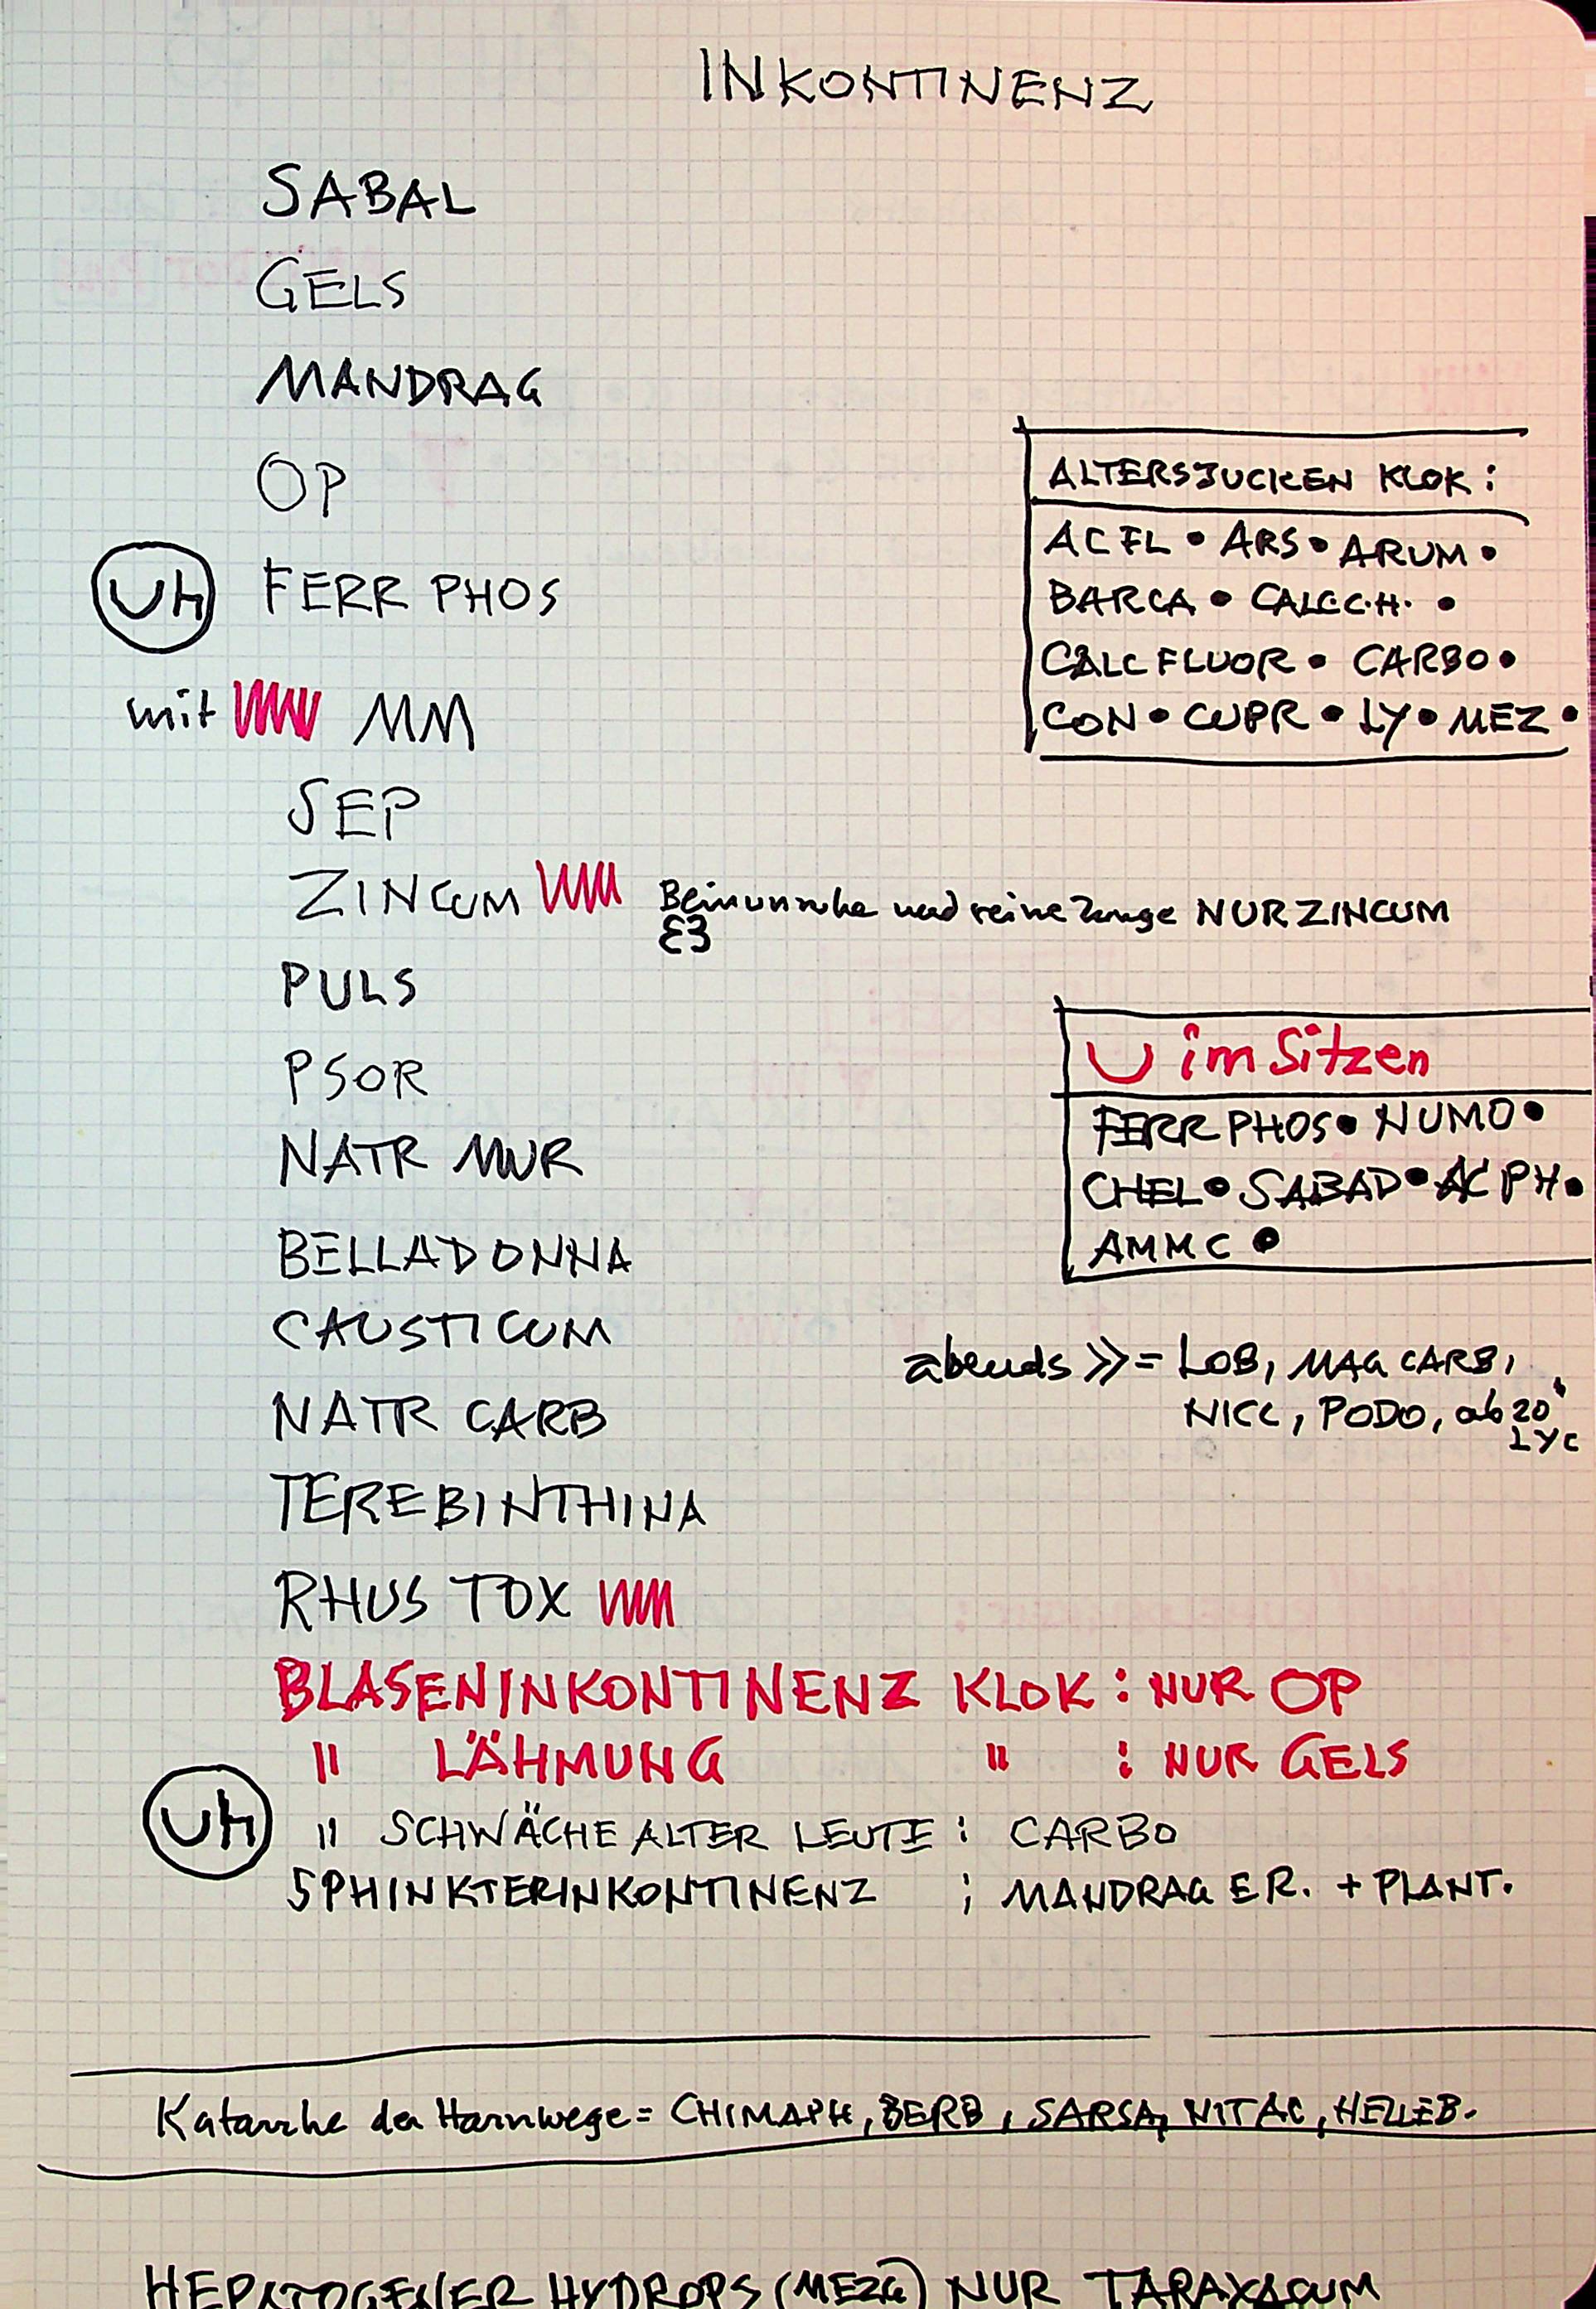 INKONTINENZ
SABAL
GELS
MANDRAG
OP
Uh FERR PHOS
mit MM
SEP
ZINCUM Beinunruhe und reine Zunge NUR ZINCUM
PULS
PSOR
NATR MUR
BELLADONNA
CAUSTICUM
NATR CARB
TEREBINTHINA
RHUS TOX
ALTERSJUCKEN KLOK:
ACFL • ARS • ARUM •
BARCA • CALCC.H. •
CALC FLUOR • CARBO •
CON • CUPR • LY • MEZ •
U im Sitzen
FERR PHOS • NUMO •
CHEL • SABAD • AC PH •
AMMC •
abends >> = LOB, MAG CARB,
NICC, PODO, ab 20
LYC
BLASENINKONTINENZ KLOK : NUR OP
" LÄHMUNG " : NUR GELS
Uh " SCHWÄCHE ALTER LEUTE : CARBO
SPHINKTERINKONTINENZ ; MANDRAG ER. + PLANT.
Katarrhe der Harnwege = CHIMAPH, BERB, SARSA, NITAC, HELLEB.
HEPATOGENER HYDROPS (MEZG) NUR TARAXACUM